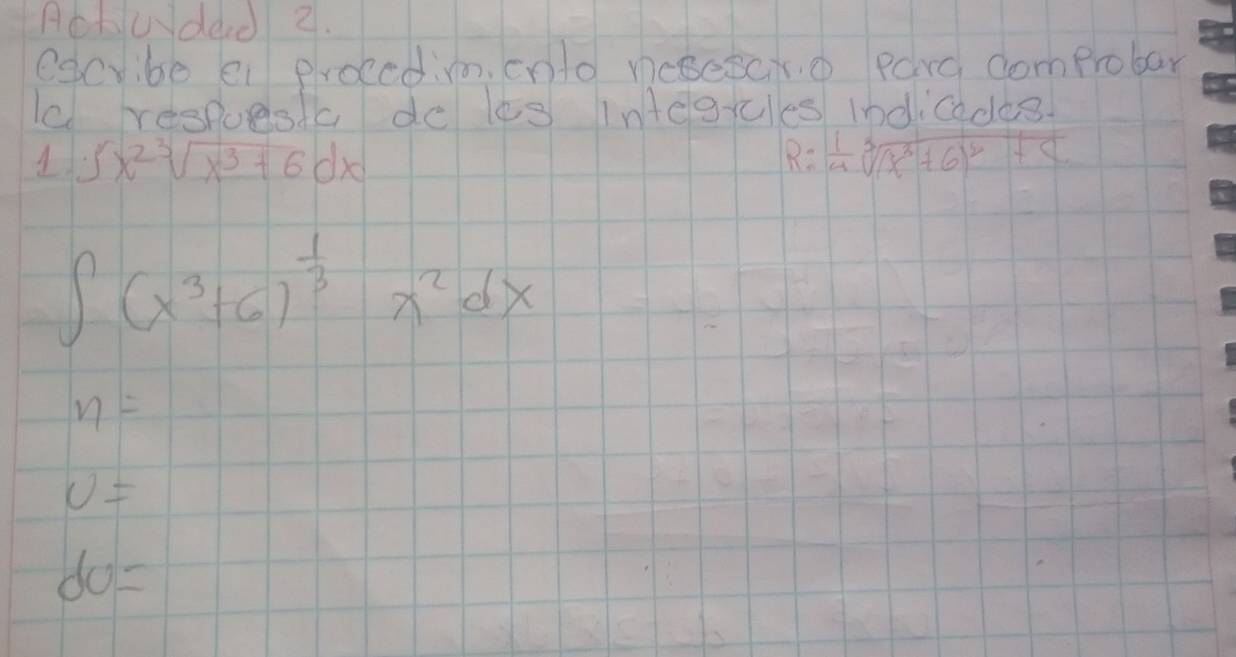 Actividad 2.
escribe el procedimiento nesesario para comprobar
la respuesta de las integrales indicadas.
1. ∫x² ³√(x³ + 6) dx R: 1/4 ³√((x³ + 6)² + c)
∫ (x³+6)^(1/3) x² dx
n =
u =
du =